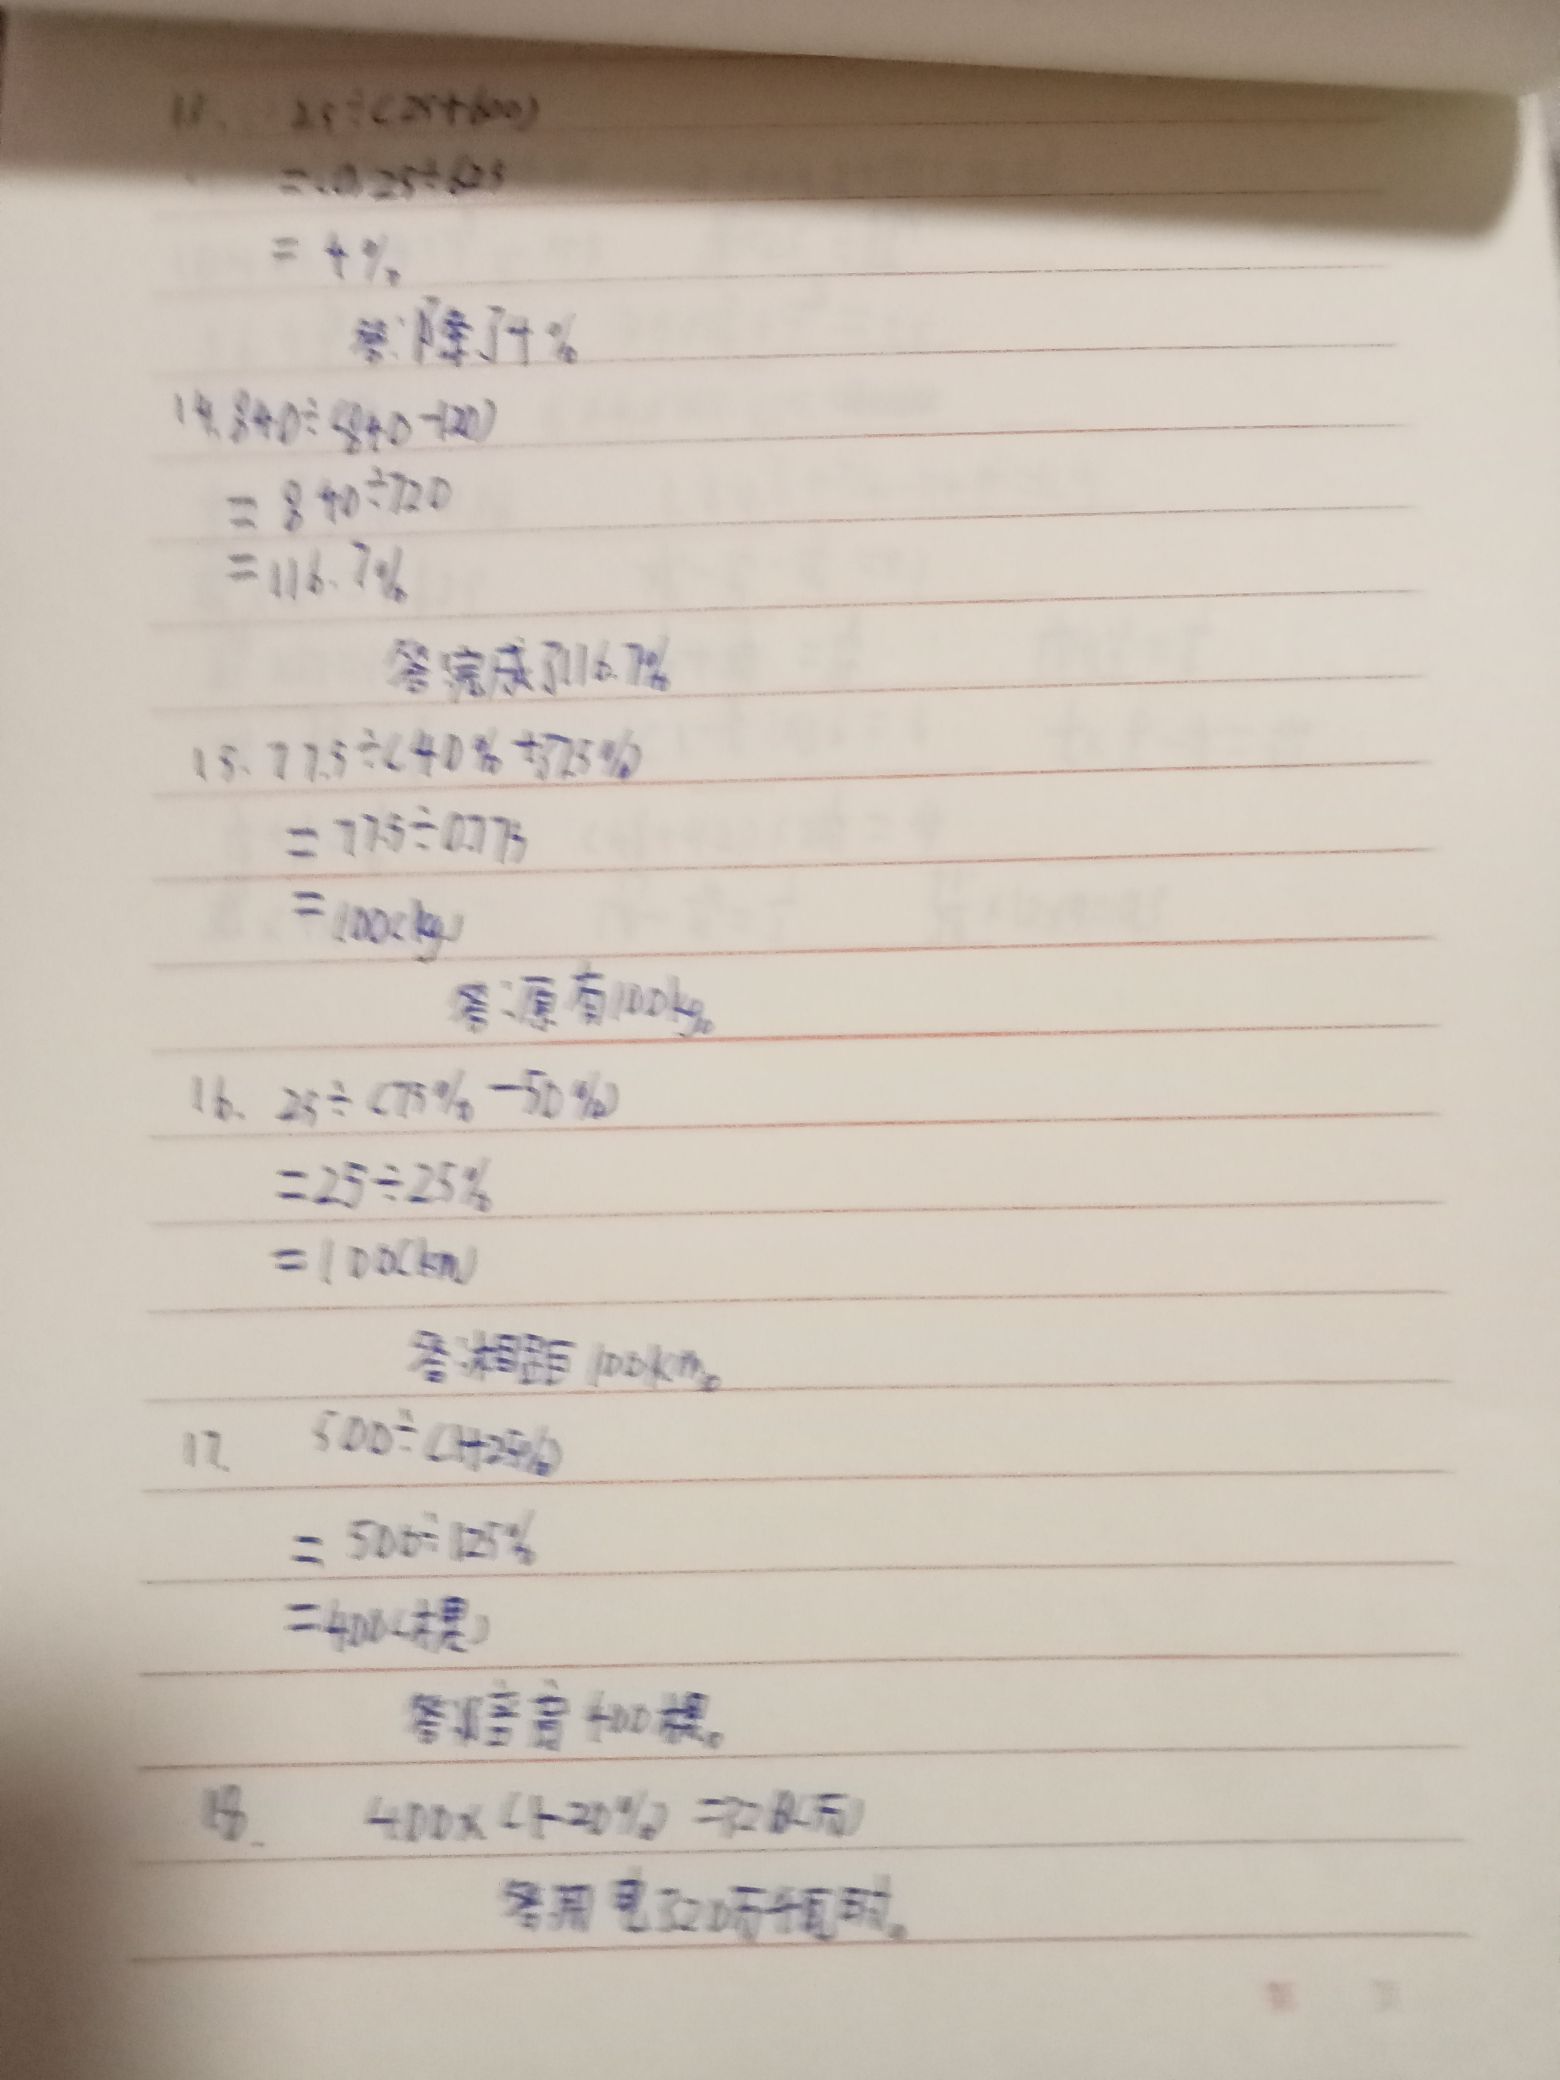 13. 25÷(25+600)
=25÷625
=4%
答:降了4%
14. 840÷(840-120)
=840÷720
=116.7%
答完成了116.7%
15. 77.5÷(40%+37.5%)
=77.5÷0.775
=100(kg)
答:原有100kg。
16. 25÷(75%-50%)
=25÷25%
=100(km)
答:相距100km。
17. 500÷(1+25%)
=500÷125%
=400(棵)
答: 400棵。
18. 400×(1-20%)=320(万)
答用电320万千瓦时。